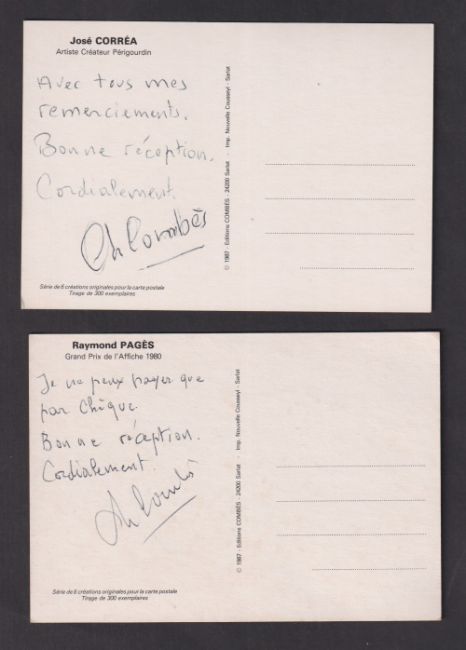 José CORRÉA
Artiste Créateur Périgourdin
Avec tous mes
remerciements.
Bonne réception.
Cordialement.
Ch Combès
Série de 6 créations originales pour la carte postale
Tirage de 300 exemplaires
© 1987 - Editions COMBÈS - 24200 Sarlat - Imp. Nouvelle Coussey! - Sarlat
Raymond PAGÈS
Grand Prix de l'Affiche 1980
Je ne peux payer que
par chèque.
Bonne réception.
Cordialement.
Ch Combès
Série de 6 créations originales pour la carte postale
Tirage de 300 exemplaires
© 1987 - Editions COMBÈS - 24200 Sarlat - Imp. Nouvelle Coussey! - Sarlat